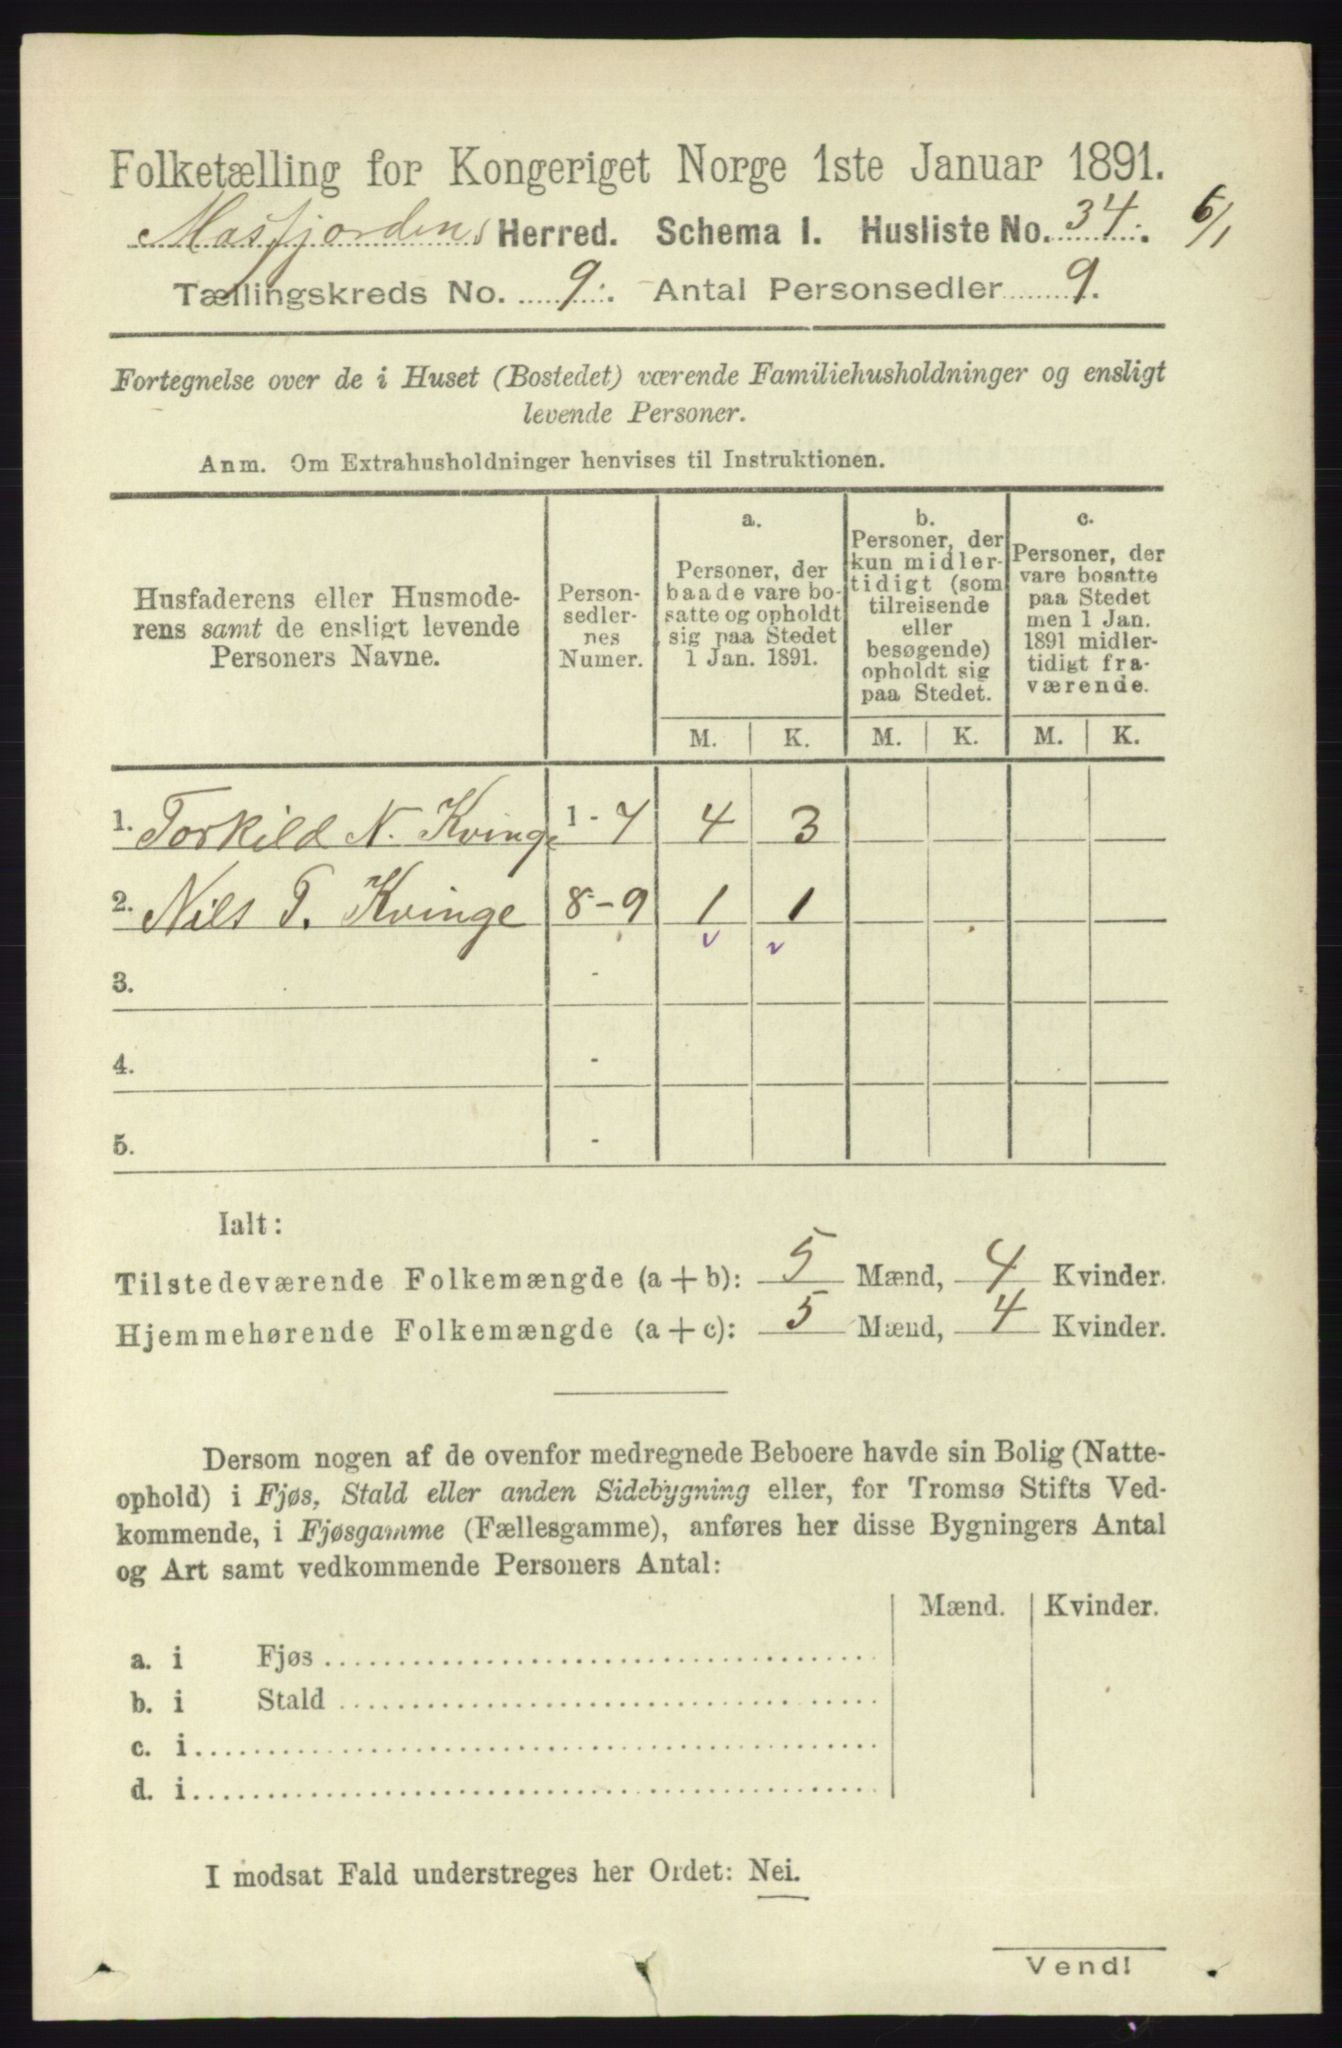 Folketælling for Kongeriget Norge 1ste Januar 1891.
Masfjordens Herred. Schema I. Husliste No. 34. 6/1
Tællingskreds No. 9. Antal Personsedler 9.
Fortegnelse over de i Huset (Bostedet) værende Familiehusholdninger og ensligt
levende Personer.
Anm. Om Extrahusholdninger henvises til Instruktionen.
Husfaderens eller Husmode-
rens samt de ensligt levende
Personers Navne.
Person-
sedler-
nes
Numer.
a.
Personer, der
baade vare bo-
satte og opholdt
sig paa Stedet
1 Jan. 1891.
b.
Personer, der
kun midler-
tidigt (som
tilreisende
eller
besøgende)
opholdt sig
paa Stedet.
c.
Personer, der
vare bosatte
paa Stedet
men 1 Jan.
1891 midler-
tidigt fra-
værende.
M. K. M. K. M. K.
1. Torkild N. Kvinge 1 - 7 4 3
2. Nils T. Kvinge 8 - 9 1 1
3. -
4. -
5. -
Ialt:
Tilstedeværende Folkemængde (a + b): 5 Mænd, 4 Kvinder.
Hjemmehørende Folkemængde (a + c): 5 Mænd, 4 Kvinder.
Dersom nogen af de ovenfor medregnede Beboere havde sin Bolig (Natte-
ophold) i Fjøs, Stald eller anden Sidebygning eller, for Tromsø Stifts Ved-
kommende, i Fjøsgamme (Fællesgamme), anføres her disse Bygningers Antal
og Art samt vedkommende Personers Antal:
Mænd. Kvinder.
a. i Fjøs
b. i Stald
c. i
d. i
I modsat Fald understreges her Ordet: Nei.
Vend!